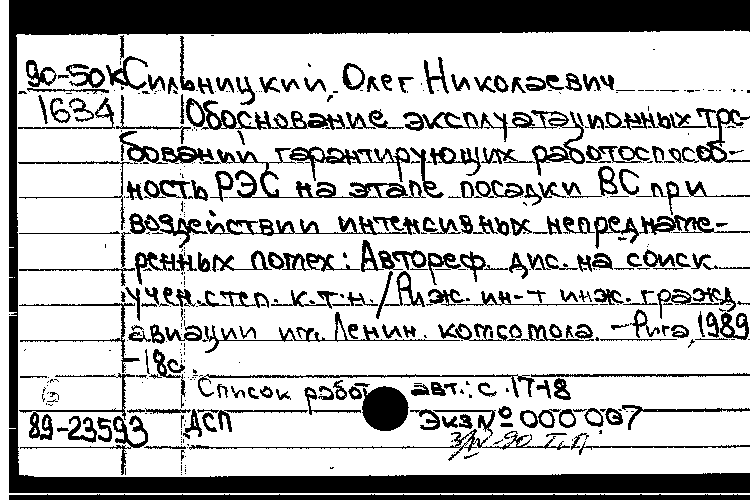 90-50к Сильницкий, Олег Николаевич
1634 Обоснование эксплуатационных тре-
бований, гарантирующих работоспособ-
ность РЭС на этапе посадки ВС при
воздействии интенсивных непреднаме-
ренных помех: Автореф. дис. на соиск.
учен. степ. к.т.н. / Риж. ин-т инж. гражд.
авиации им. Ленин. комсомола. - Рига, 1989
- 18с.
Список работ авт.: с. 17-18
89-23593 ДСП Экз № 000007